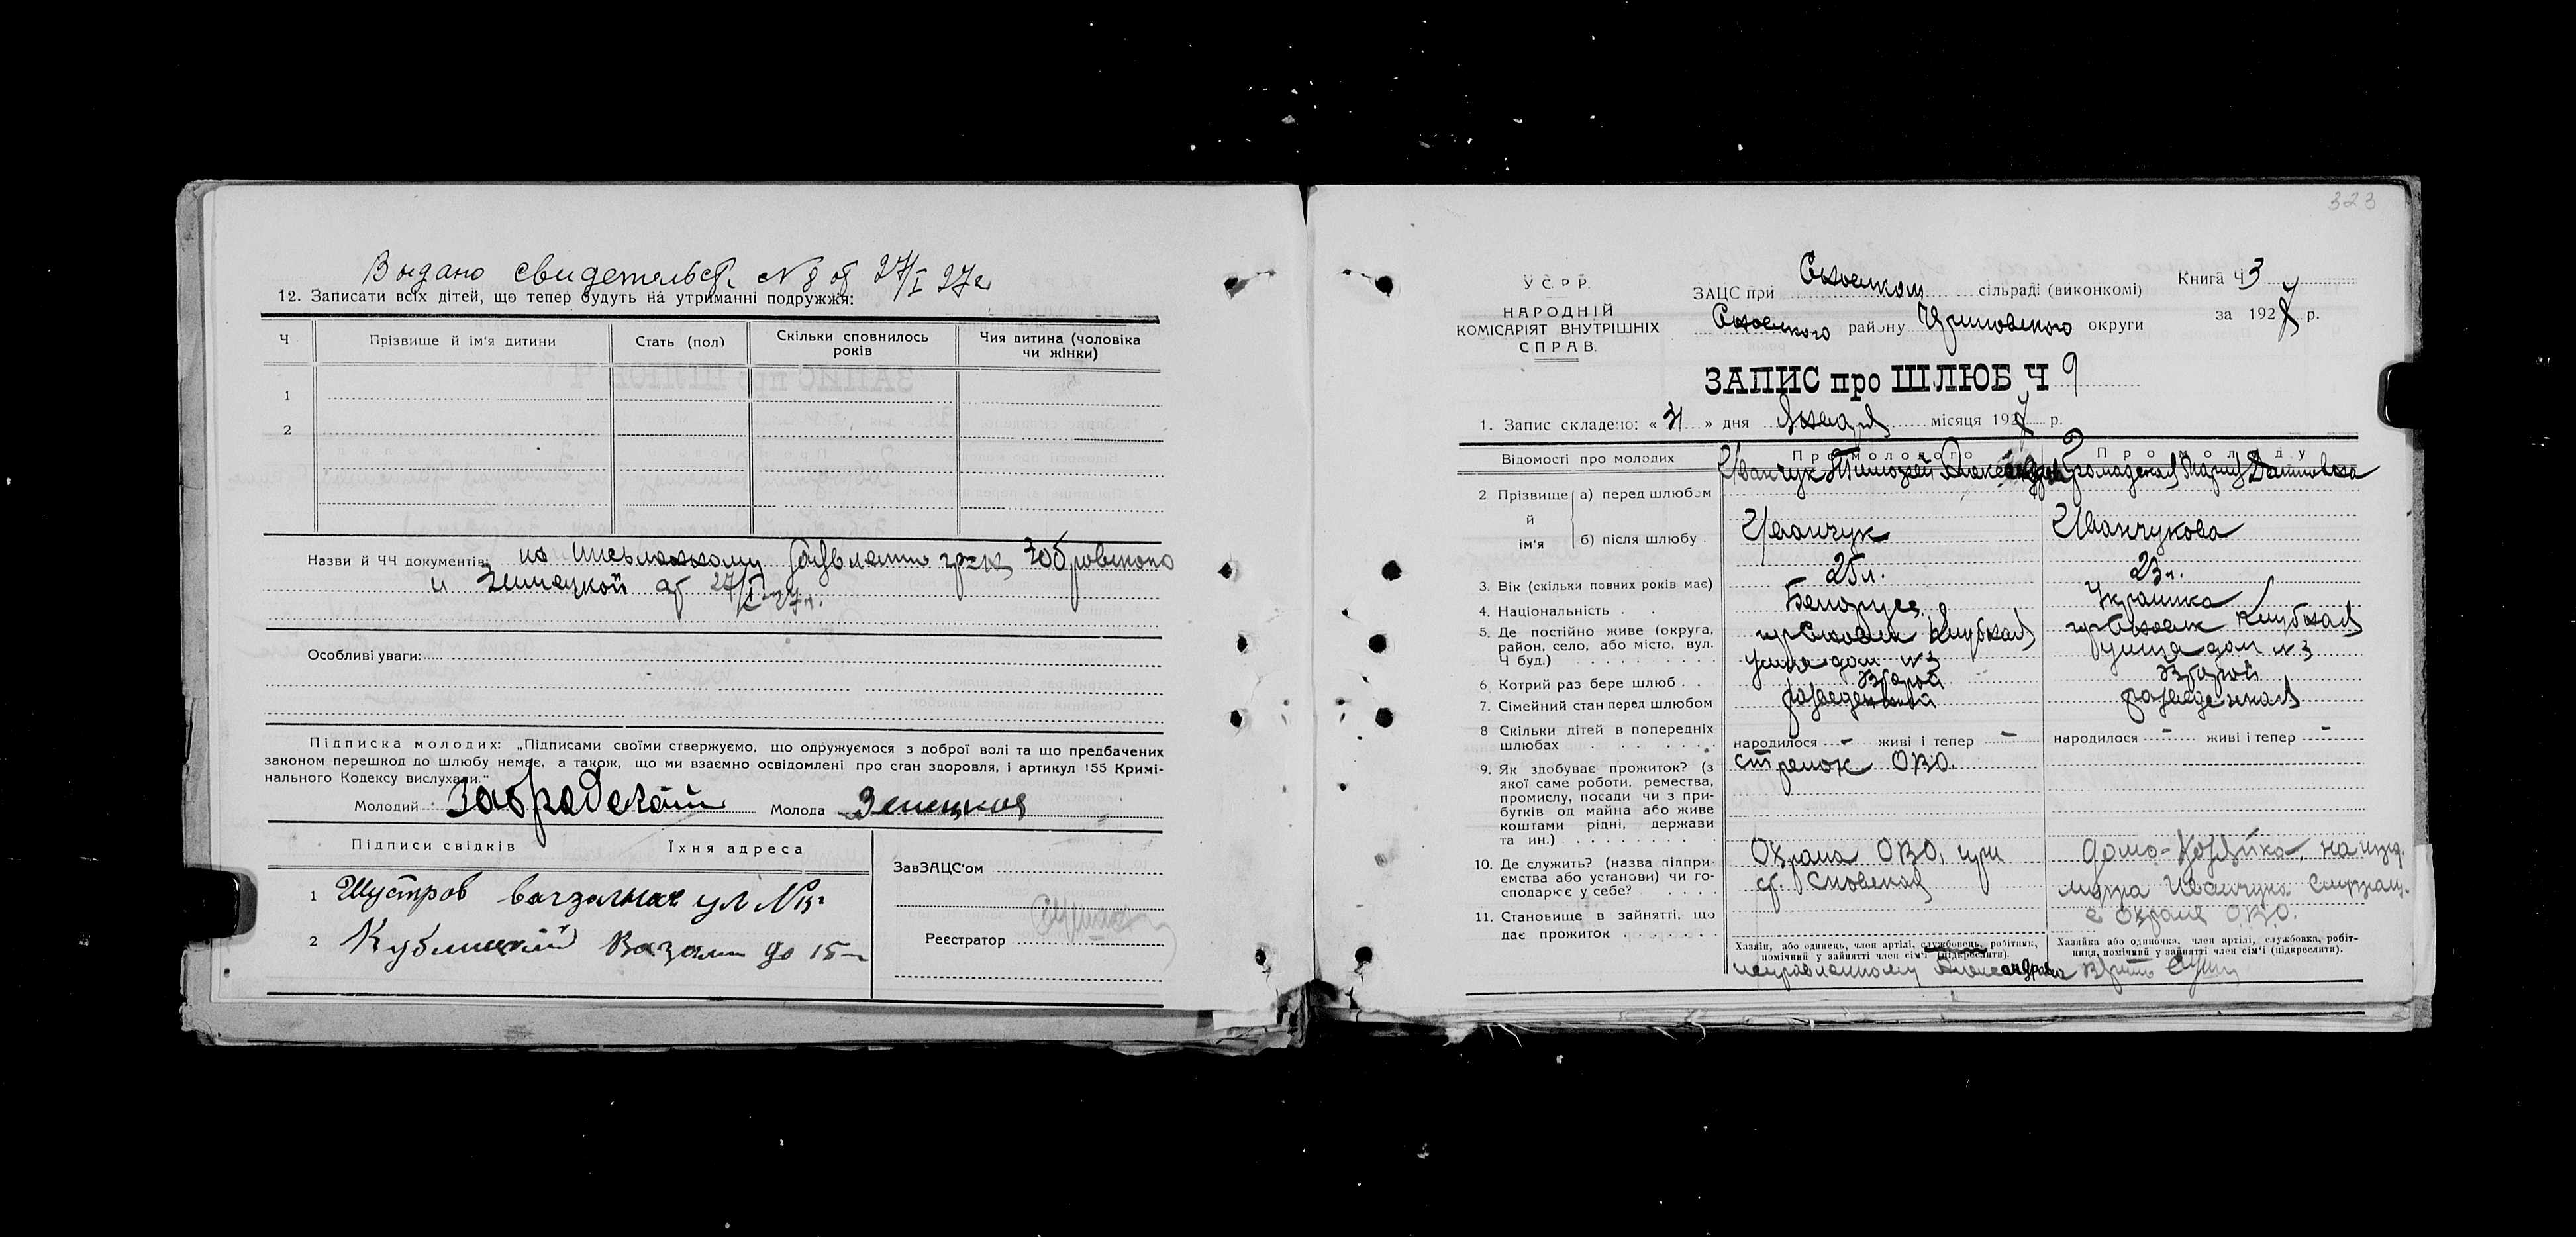 Выдано свидетельст. № 8 от 27/I 27 г.
12. Записати всіх дітей, що тепер будуть на утриманні подружжя:
Ч
Прізвище й ім'я дитини
Стать (пол)
Скільки сповнилось років
Чия дитина (чоловіка чи жінки)
1
2
Назви й ЧЧ документів:
и Зенецкой от 27/I-27 г.
Особливі уваги:
Підписка молодих: „Підписами своїми стверджуємо, що одружуємося з доброї волі та що предбачених
законом перешкод до шлюбу немає, а також, що ми взаємно освідомлені про стан здоровля, і артикул 155 Кримі-
нального Кодексу вислухали."
Молодий
Молода Зенецкая
Підписи свідків
Їхня адреса
1 Шустров вагзальная ул №
2 Кублицкий
ЗавЗАЦС'ом
Реєстратор
323
УСРР.
НАРОДНІЙ
КОМІСАРІЯТ ВНУТРІШНІХ
СПРАВ.
ЗАЦС при сільраді (виконкомі)
району округи
Книга Ч 3
за 1927 р.
ЗАПИС про ШЛЮБ Ч 9
1. Запис складено: « 31 » дня Января місяця 1927 р.
Відомості про молодих
Про молодого
Про молоду
Иванчук Тимофей Александр
Громадская Мария
2 Прізвище й ім'я
а) перед шлюбом
б) після шлюбу
Иванчук
Иванчукова
3. Вік (скільки повних років має)
25 л.
23 л.
4. Національність
Белорусс
Украинка
5. Де постійно живе (округа,
район, село, або місто, вул.
Ч буд.)
улица дом № 3
улица дом № 3
6. Котрий раз бере шлюб
Второй
Второй
7. Сімейний стан перед шлюбом
разведенный
разведенная
8 Скільки дітей в попередніх
шлюбах
народилося - живі і тепер -
народилося - живі і тепер -
9. Як здобуває прожиток? (з
якої саме роботи, ремества,
промислу, посади чи з при-
бутків од майна або живе
коштами рідні, держави
та ин.)
стрелок ОВО.
10. Де служить? (назва підпри-
ємства або установи) чи го-
сподарює у себе?
Охрана ОВО, при
ст.
Домо-хозяйка, на ижд.
мужа Иванчука
в охране О.В.О.
11. Становище в зайнятті, що
дає прожиток
Хазяїн, або одинець, член артілі, службовець, робітник,
помічний у зайнятті член сім'ї (підкреслити).
Хазяйка або одиночка, член артілі, службовка, робіт-
ниця, помічний у зайнятті член сім'ї (підкреслити).